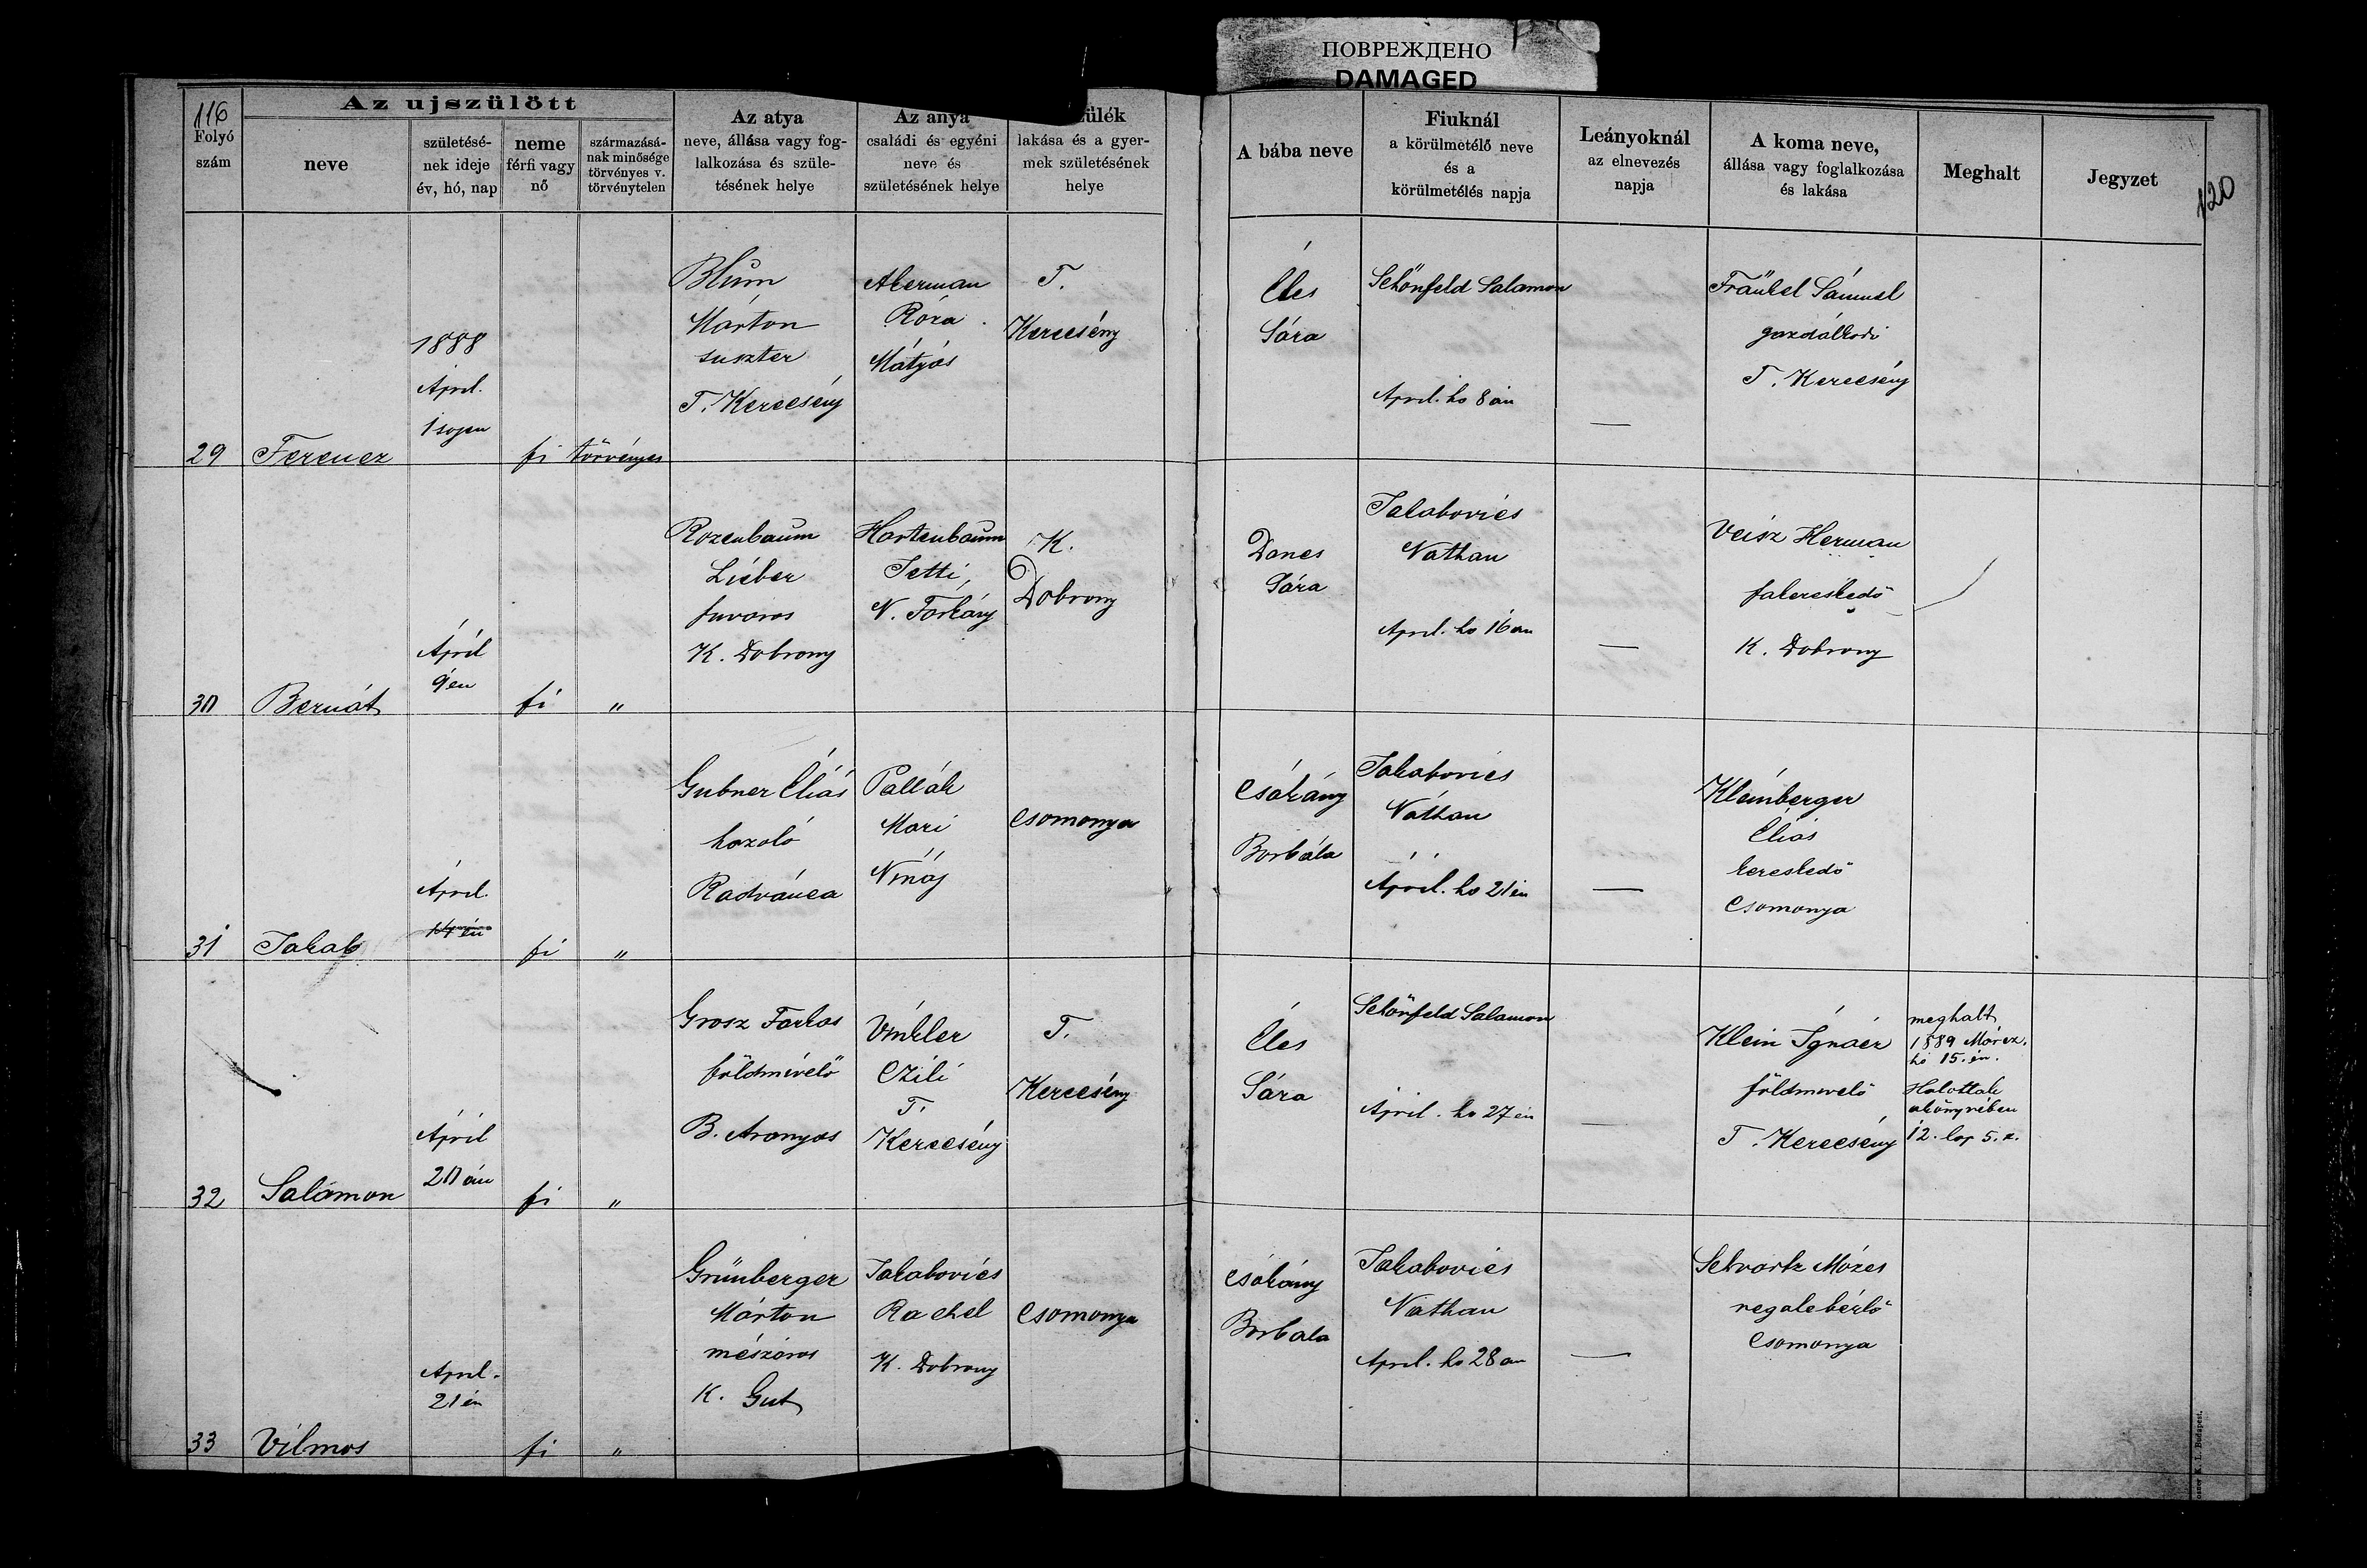 ПОВРЕЖДЕНО
DAMAGED
116
Az ujszülött
Folyó
szám
neve
születésé-
nek ideje
év, hó, nap
neme
férfi vagy
nő
származásá-
nak minősége
törvényes v.
törvénytelen
Az atya
neve, állása vagy fog-
lalkozása és szüle-
tésének helye
Az anya
családi és egyéni
neve és
születésének helye
ülék
lakása és a gyer-
mek születésének
helye
A bába neve
Fiuknál
a körülmetélő neve
és a
körülmetélés napja
Leányoknál
az elnevezés
napja
A koma neve,
állása vagy foglalkozása
és lakása
Meghalt
Jegyzet
120
29
Ferencz
1888
April.
1 sojen
fi
törvényes
Blum
Márton
suszter
T. Kerecsény
Akerman
Róza
Mátyás
T.
Kerecsény
Éles
Sára
Schönfeld Salamon
April. ho 8 án
—
Fränkel Sámuel
gazdálkodó
T. Kerecsény
30
Bernát
Ápril
9 en
fi
"
Rozenbaum
Lieber
fuvaros
K. Dobrony
Hartenbaum
Jetti,
N. Tarkány
K.
Dobrony
Danes
Sára
Jakabovics
Nathan
April. ho 16 an
—
Veisz Herman
fakereskedő
K. Dobrony
31
Jakab
Ápril.
14 én
fi
"
Gubner Éliás
hazaló
Radvánca
Pallák
Mari
Csomonya
Csákány
Borbála
Jakabovics
Náthan
Április. ho 21 én
—
Kleinberger
Éliás
kereskedő
Csomonya
32
Salamon
Ápril
20 án
fi
"
Grosz Farkas
földmivelő
B. Aranyos
Vinkler
Czili
T.
Kerecsény
T.
Kerecsény
Éles
Sára
Schönfeld Salamon
April. ho 27 én
—
Klein Ignácz
földmivelő
T. Kerecsény
meghalt
1889 Márcz.
hó 15. én.
Halottak
akönyvében
12. lap 5. sz.
33
Vilmos
April.
21 én
fi
"
Grünberger
Márton
mészáros
K. Gut
Jakabovics
Rachel
K. Dobrony
Csomonya
Csákány
Borbala
Jakabovics
Nathan
April. ho 28 an
—
Schvartz Mózes
regalebérlő
Csomonya